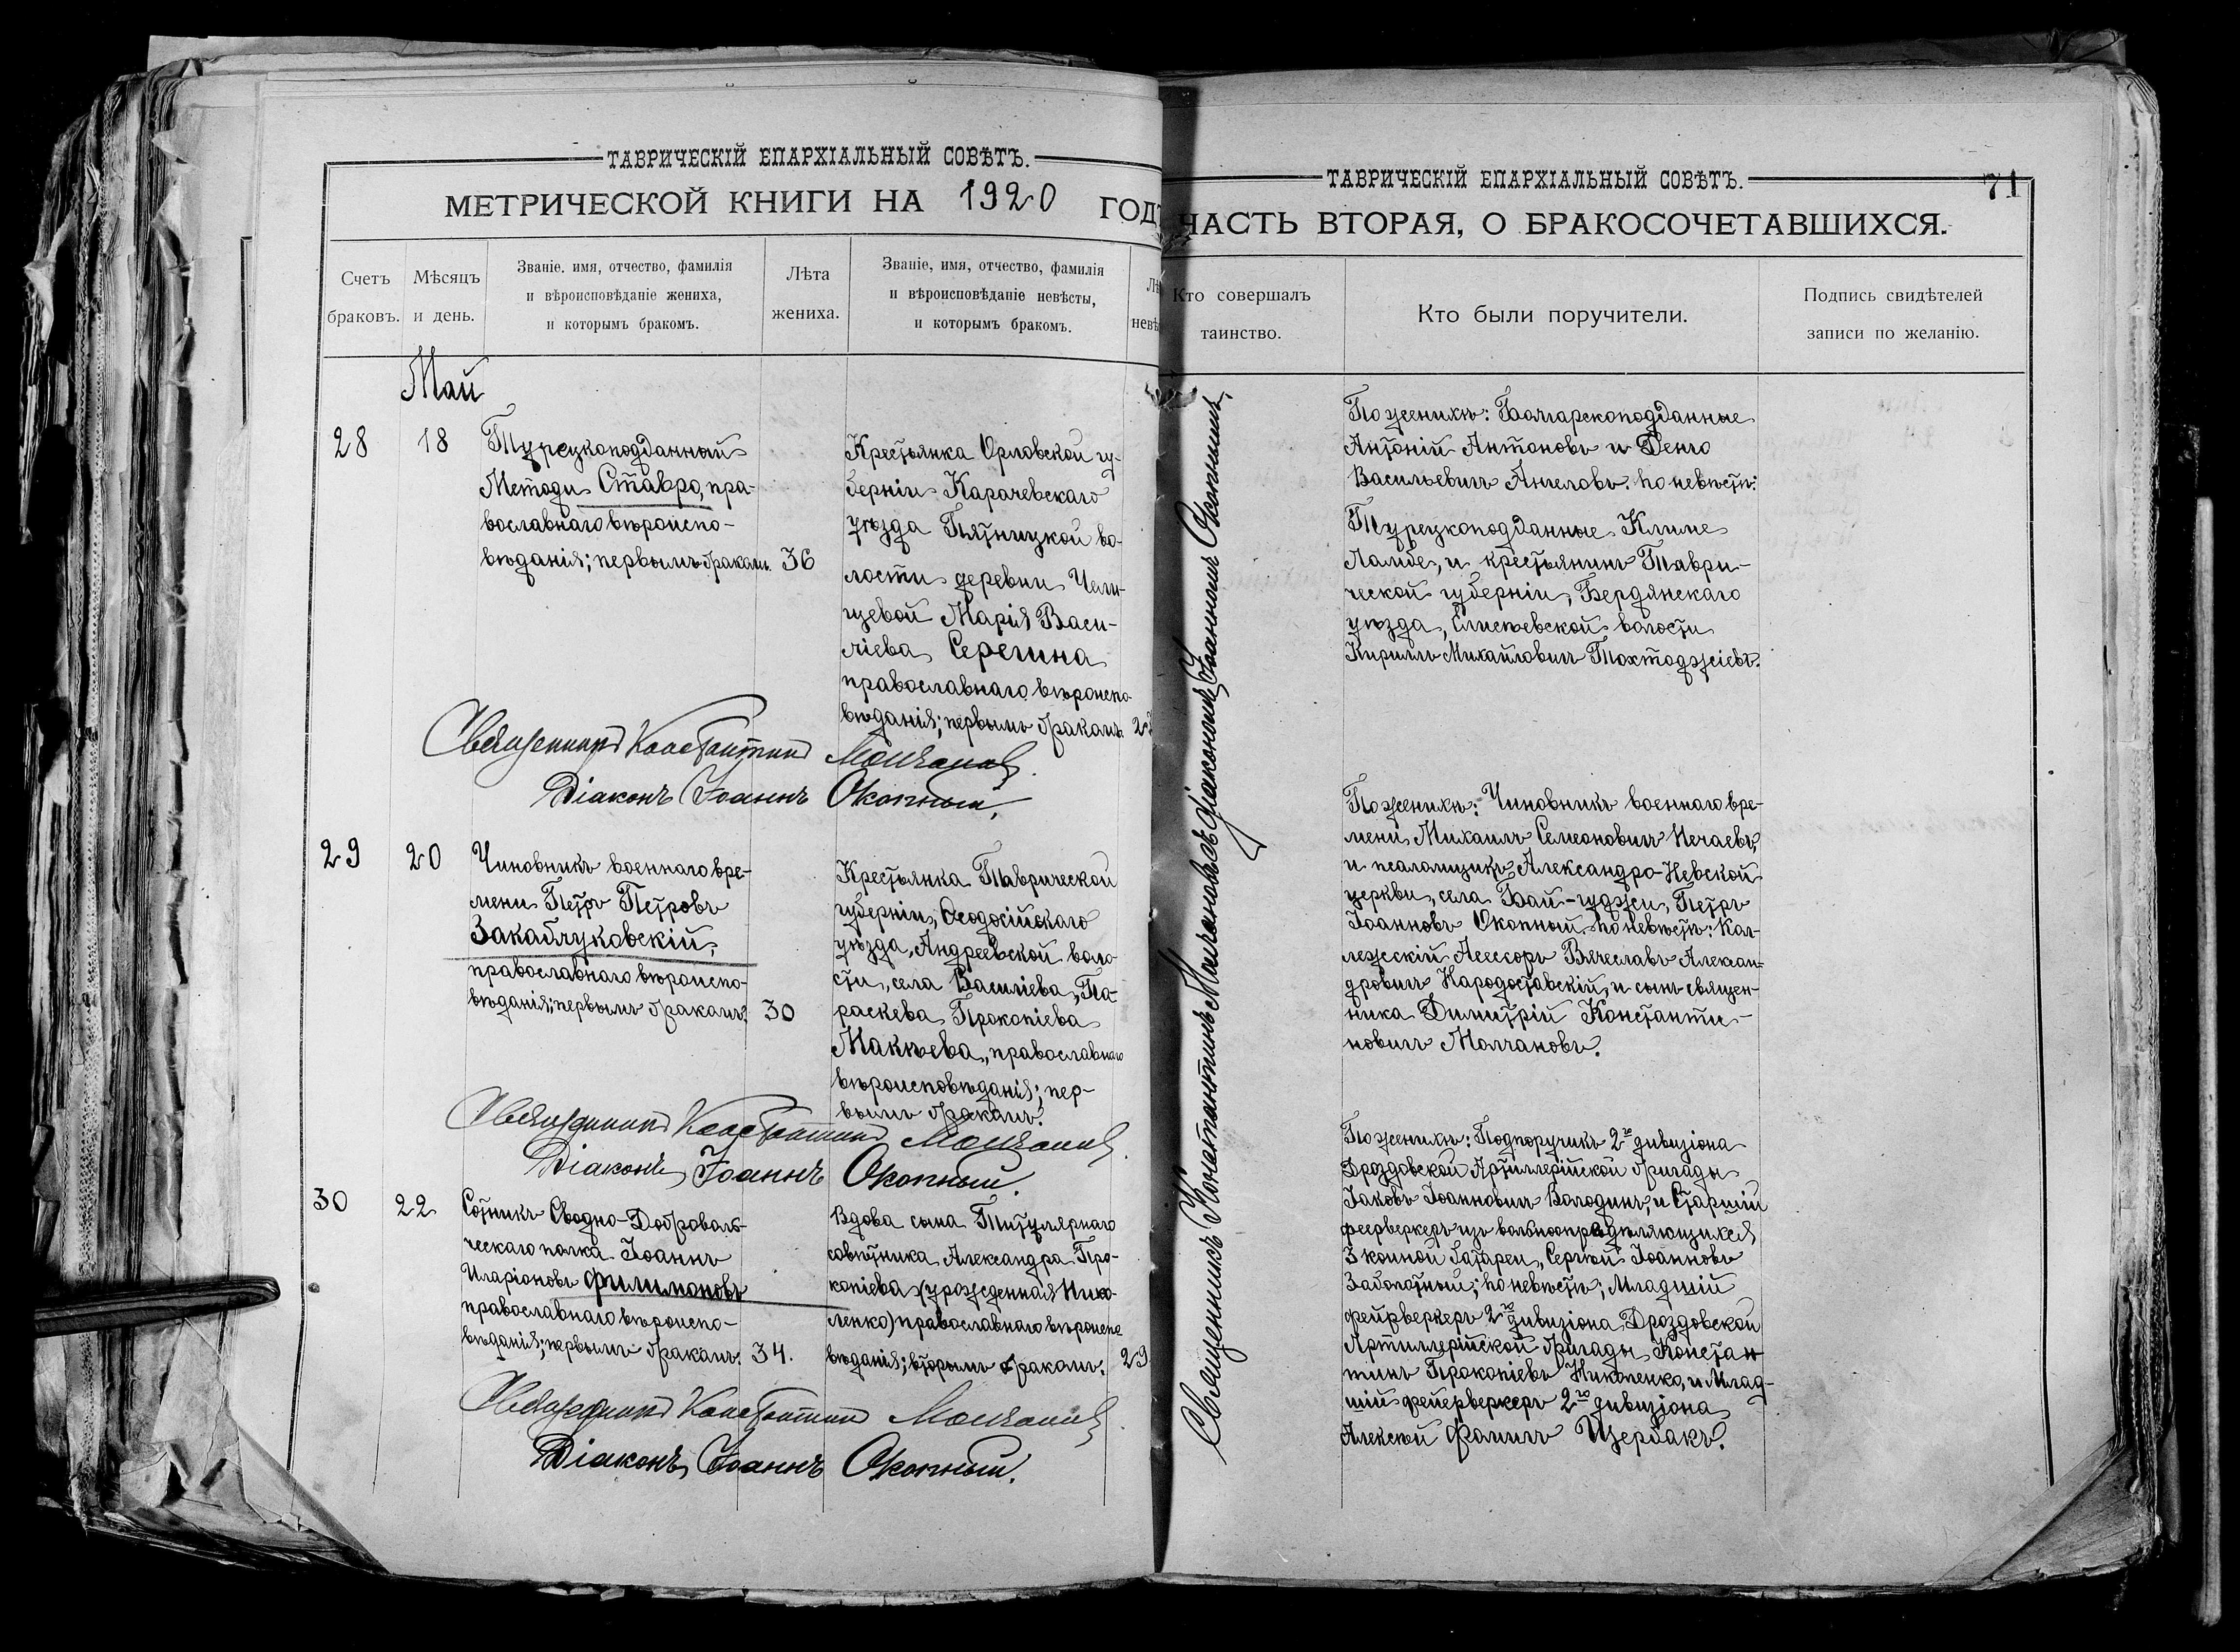 ТАВРИЧЕСКІЙ ЕПАРХІАЛЬНЫЙ СОВѢТЪ.
МЕТРИЧЕСКОЙ КНИГИ НА 1920 ГОДЪ
Счетъ браковъ.
Мѣсяцъ и день.
Званіе, имя, отчество, фамилія
и вѣроисповѣданіе жениха,
и которымъ бракомъ.
Лѣта
жениха.
Званіе, имя, отчество, фамилія
и вѣроисповѣданіе невѣсты,
и которымъ бракомъ.
Лѣ
невѣ
Май
28
18
Турецкоподданный
Методи Ставро, пра-
вославнаго вѣроиспо-
вѣданія; первымъ бракомъ.
36
Крестьянка Орловской гу-
берніи Карачевскаго
уѣзда Пятницкой во-
лости деревни Чели-
щевой Марія Васи-
ліева Серегина
православнаго вѣроиспо-
вѣданія; первымъ бракомъ.
Священникъ Константинъ Молчановъ.
Діаконъ Іоаннъ Окопный.
29
20
Чиновникъ военнаго вре-
мени Петръ Петровъ
Закаблуковскій,
православнаго вѣроиспо-
вѣданія; первымъ бракомъ.
30
Крестьянка Таврической
губерніи, Ѳеодосійскаго
уѣзда, Андреевской воло
сти, села Василіева, Па-
раскева Прокопіева
Макѣева, православнаго
вѣроисповѣданія; пер-
вымъ бракомъ.
Священникъ Константинъ Молчановъ.
Діаконъ Іоаннъ Окопный.
30
22
Сотникъ Сводно-
ческаго полка Іоаннъ
Иларіоновъ Филимоновъ
православнаго вѣроиспо-
вѣданія; первымъ бракомъ.
34.
Вдова сына Титулярнаго
совѣтника Александра Про-
копіева (урожденная Нико-
ленко) православнаго вѣроиспо
вѣданія; вторымъ бракомъ.
29
Священникъ Константинъ Молчановъ.
Діаконъ Іоаннъ Окопный.
ТАВРИЧЕСКІЙ ЕПАРХІАЛЬНЫЙ СОВѢТЪ.
71
ЧАСТЬ ВТОРАЯ, О БРАКОСОЧЕТАВШИХСЯ.
Кто совершалъ
таинство.
Кто были поручители.
Подпись свидѣтелей
записи по желанію.
Священникъ Константинъ Молчановъ съ діакономъ Іоанномъ Окопнымъ.
По женихѣ: Болгарскоподданные
Антоній Антоновъ и Денго
Васильевичъ Ангеловъ. по невѣстѣ:
Турецкоподданные Климе
Ламбе, и крестьянинъ Таври-
ческой губерніи, Бердянскаго
уѣзда, волости
Кириллъ Михайловичъ
По женихѣ: Чиновникъ военнаго вре-
мени Михаилъ Семеоновичъ Нечаевъ,
и псаломщикъ Александро-Невской
церкви, села Бай-Гуджи, Петръ
Іоанновъ Окопный. по невѣстѣ: Кол-
лежскій Асессоръ Вячеславъ Алексан-
дровичъ Народоставскій, и сынъ священ-
ника Димитрій Константи-
новичъ Молчановъ.
По женихѣ: Подпоручикъ 2го дивизіона
Дроздовской Артиллерійской бригады
Іаковъ Іоанновичъ Володинъ, и Старшій
фейерверкеръ изъ вольноопредѣляющихся
3 конной батареи, Сергѣй Іоанновъ
Заболотный; по невѣстѣ; Младшій
фейрверкеръ 2го дивизіона Дроздовской
Артиллерійской бригады Констан
тинъ Прокопіевъ Николенко, и Млад-
шій фейерверкеръ 2го дивизіона
Алексѣй Фомичъ Щербакъ.